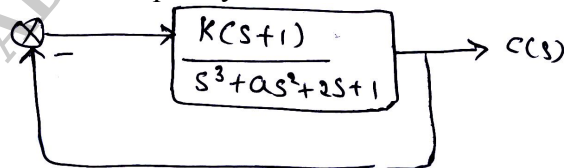 K(S+1)
S³+as²+2s+1
C(S)
−